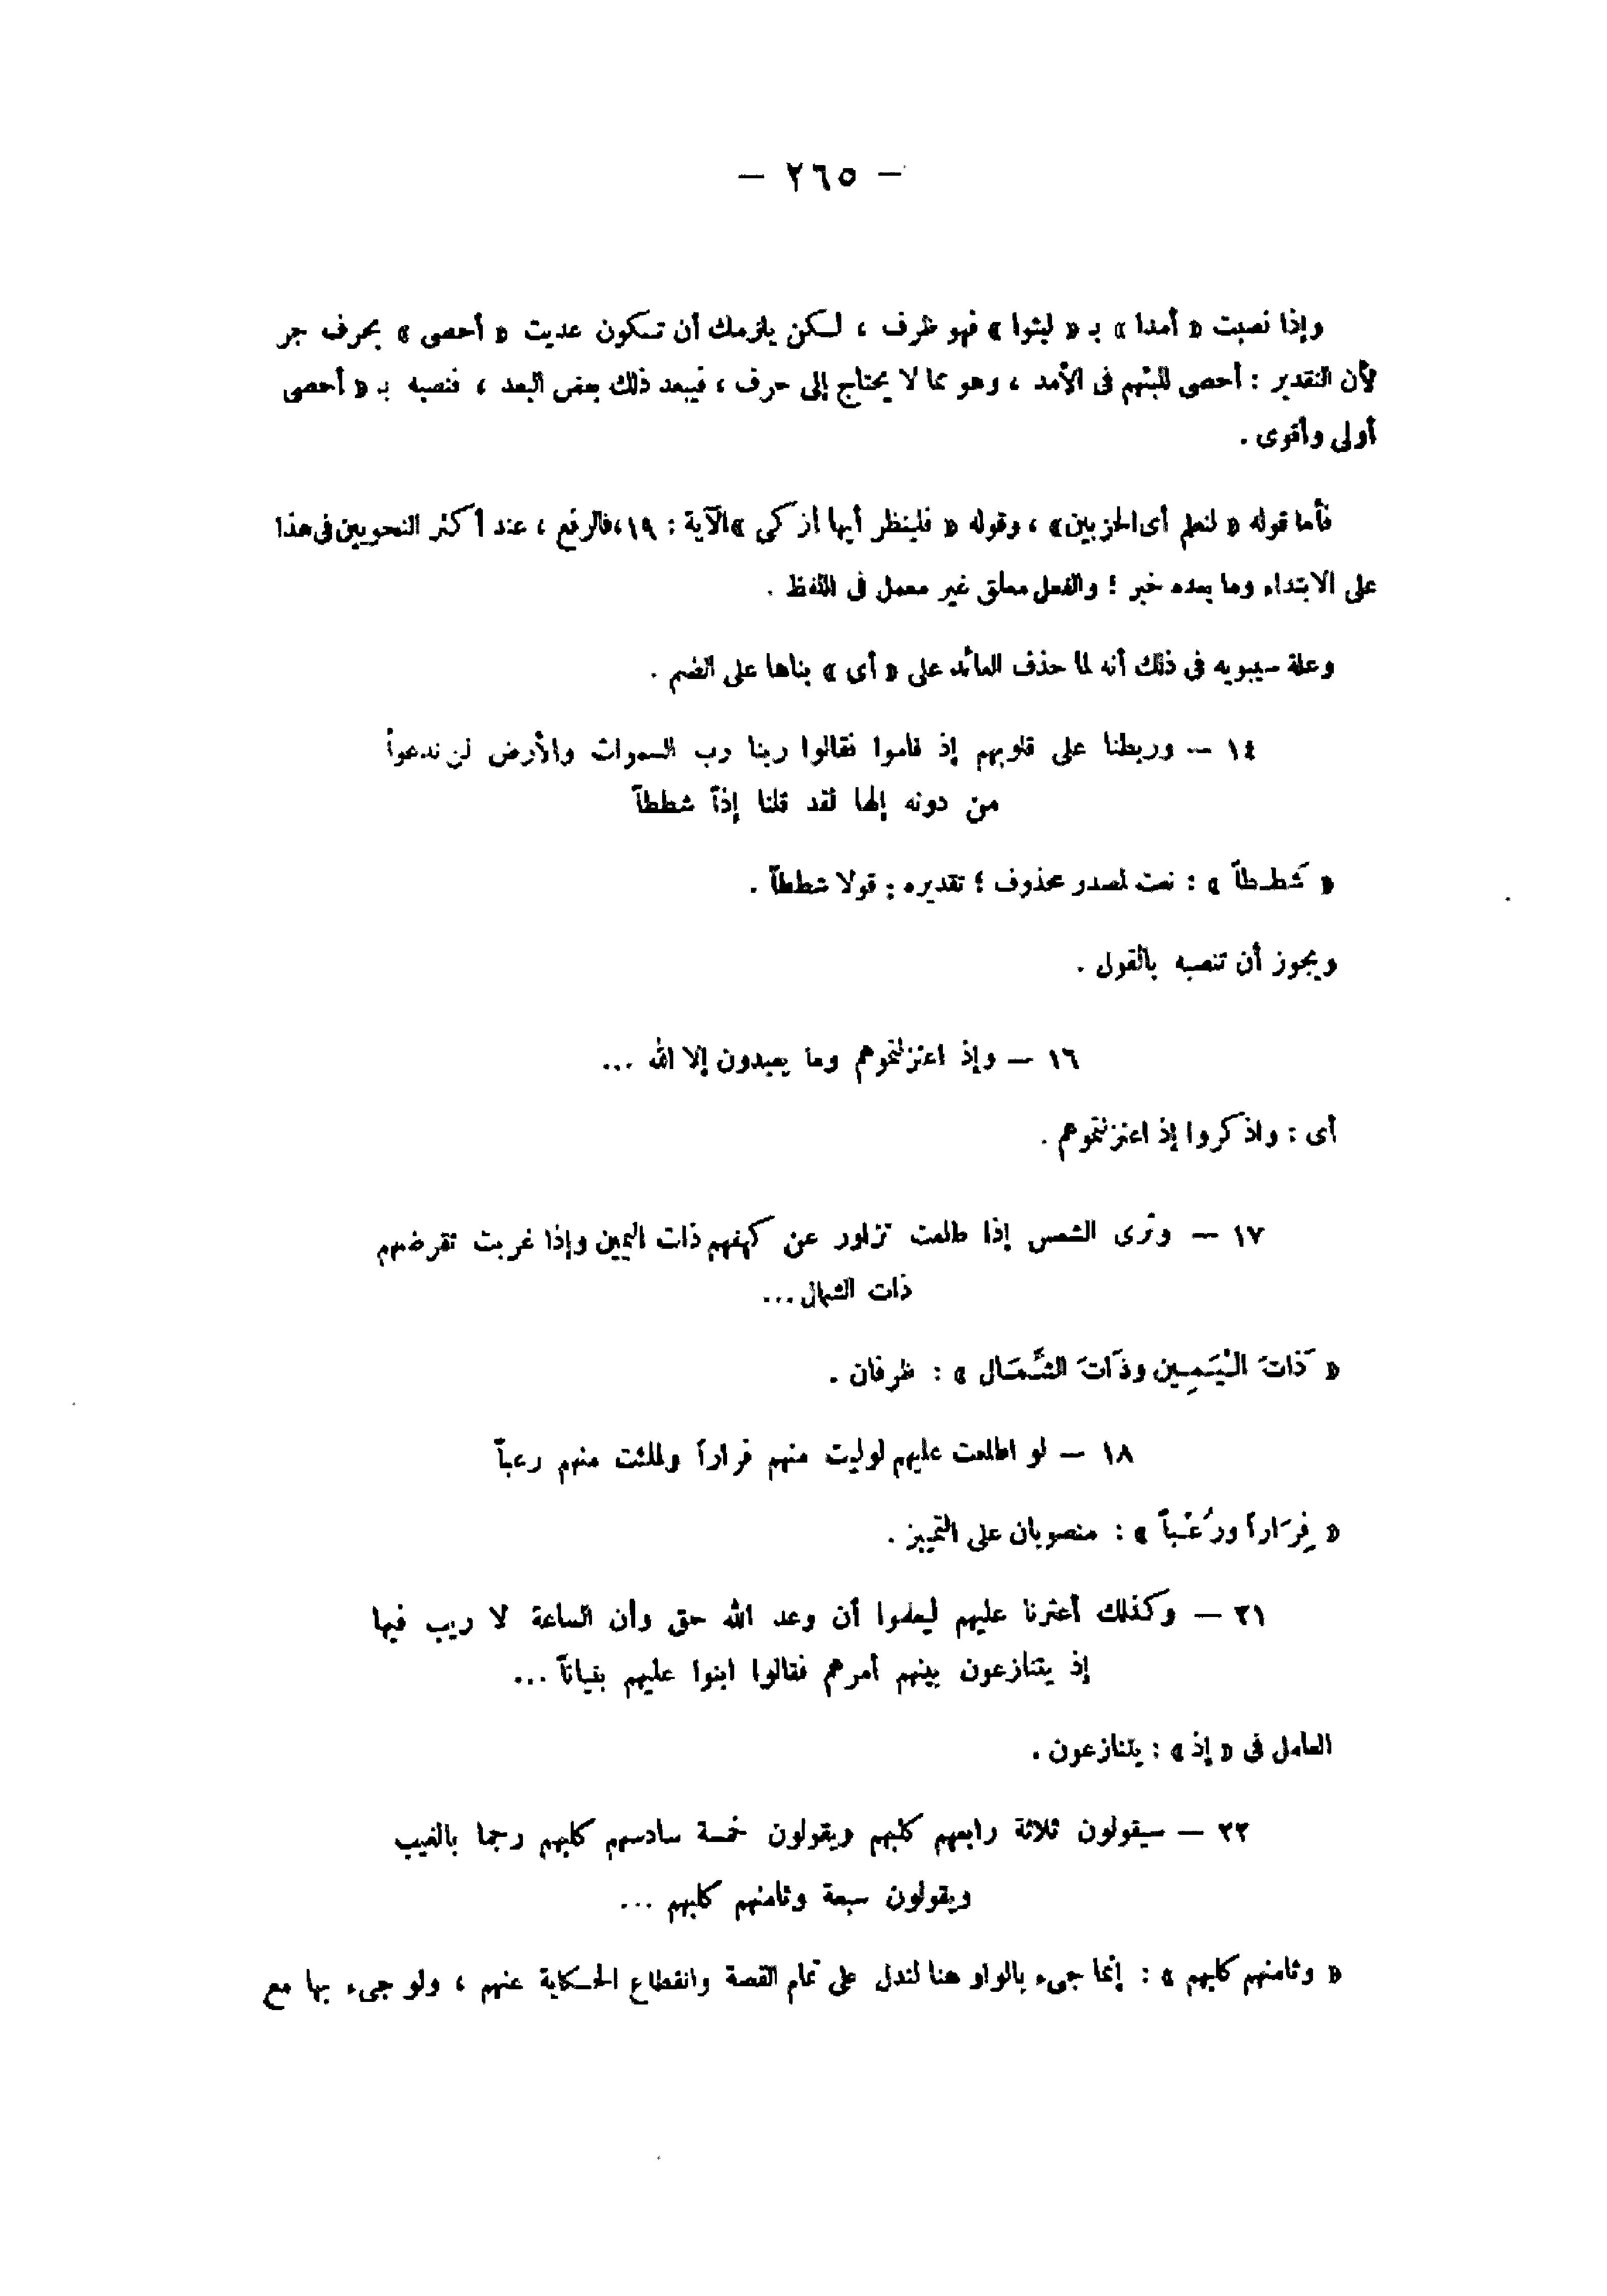 — ٢٦٥ —
وإذا نصبت « أمدا » بـ « لبثوا » فهو ظرف ، لـكن يلزمك أن تـكون عديت « أحصى » بحرف جر
لأن التقدير : أحصى للبثهم فى الأمد ، وهو مما لا يحتاج إلى حرف ، فيبعد ذلك بعض البعد ، فنصبه بـ « أحصى
أولى وأقوى .
فأما قوله « لنعلم أى الحزبين» ، وقوله « فلينظر أيها أزكى »الآية : ١٩،فالرفع ، عند أكثر النحويين فى هذا
على الابتداء وما بعده خبر ؛ والفعل معلق غير معمل فى اللفظ .
وعلة سيبويه فى ذلك أنه لما حذف العائد على « أى » بناها على الضم .
١٤ — وربطنا على قلوبهم إذ قاموا فقالوا ربنا رب السموات والأرض لن ندعوأ
من دونه إلها لقد قلنا إذآ شططآ
« شَطـطآ » : نعت لمصدر محذوف ؛ تقديره : قولا شططآ .
ويجوز أن تنصبه بالقول .
١٦ — وإذ اعتزلتموهم وما يعبدون إلا الله ...
أى : واذكروا إذ اعتزلتموهم .
١٧ — وترى الشمس إذا طلعت تزاور عن كهفهم ذات اليمين وإذا غربت تقرضهم
ذات الشمال ...
« ذَاتَ الْيَـمِـين وذَاتَ الشِّـمَـال » : ظرفان .
١٨ — لو اطلعت عليهم لوليت منهم فرارآ ولملئت منهم رعبآ
« فِرَارآ ورُعْـبآ » : منصوبان على التمييز .
٢١ — وكذلك أعثرنا عليهم ليعلموا أن وعد الله حق وأن الساعة لا ريب فيها
إذ يتنازعون بينهم أمرهم فقالوا ابنوا عليهم بنيانآ ...
العامل فى « إذ » : يتنازعون .
٢٢ — سيقولون ثلاثة رابعهم كلبهم ويقولون خمـسة سادسهم كلبهم رجما بالغيب
ويقولون سبعة وثامنهم كلبهم ...
« وثامنهم كلبهم » : إنما جىء بالواو هنا لتدل على تمام القصة وانقطاع الحـكاية عنهم ، ولو جىء بها مع